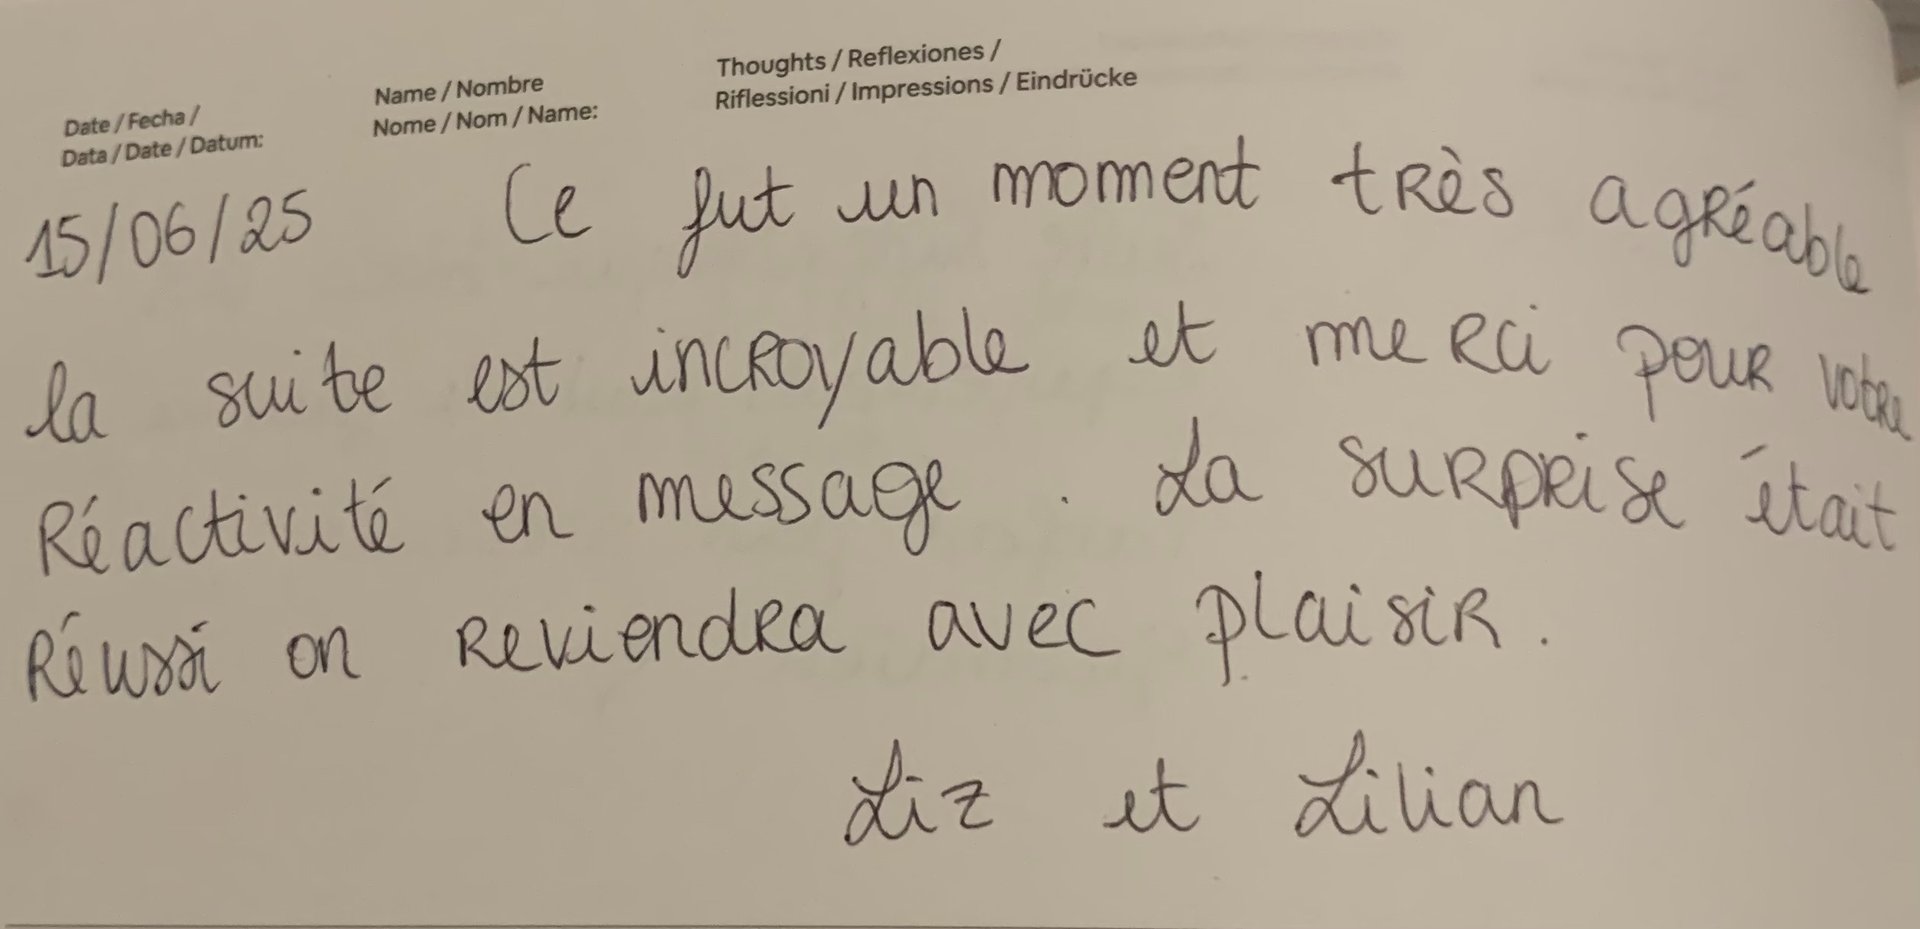 Date / Fecha /
Data / Date / Datum:
Name / Nombre
Nome / Nom / Name:
Thoughts / Reflexiones /
Riflessioni / Impressions / Eindrücke
15/06/25 Ce fut un moment très agréable
la suite est incroyable et merci pour votre
Réactivité en message. La surprise était
Réussi on reviendra avec plaisir.
Liz et Lilian